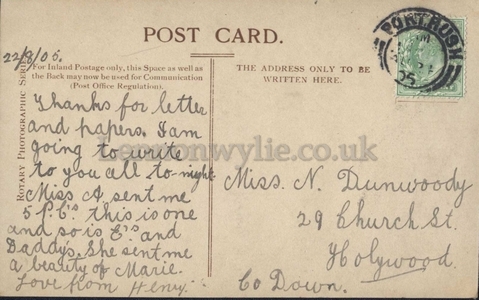 POST CARD.
22/8/05.
For Inland Postage only, this Space as well as
the Back may now be used for Communication
(Post Office Regulation).
THE ADDRESS ONLY TO BE
WRITTEN HERE.
ROTARY PHOTOGRAPHIC SERIES
PORTRUSH
05
Thanks for letter
and papers. I am
going to write
to you all to-night
Miss A sent me
5 P.C's this is one
and so is E's and
Daddy's. She sent me
a beauty of Marie.
Love from Henry.
Miss. N. Dunwoody
29 Church St.
Holywood.
Co Down.
lennonwylie.co.uk